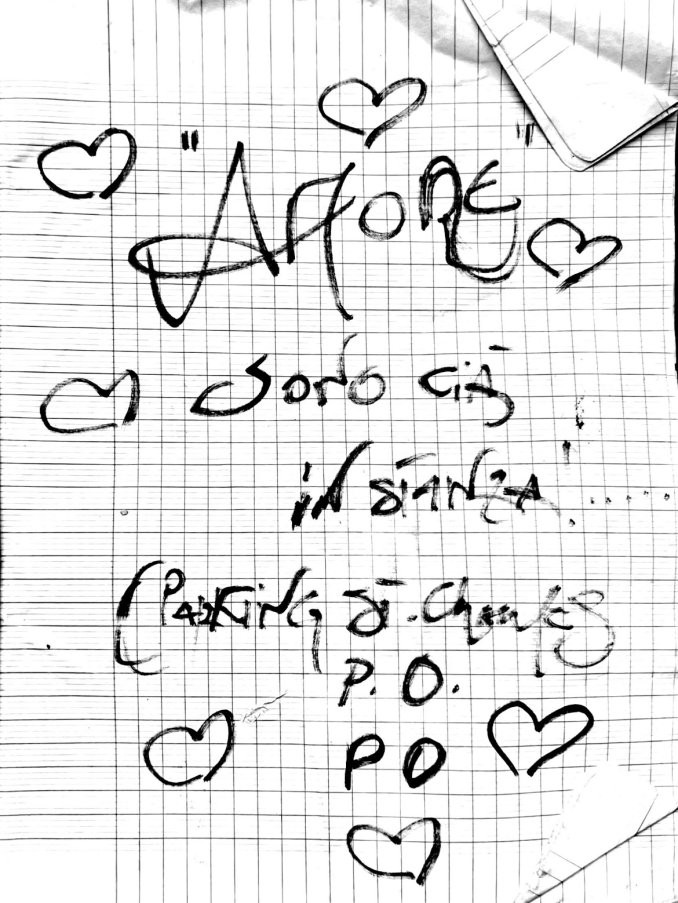 "AMORE"
SONO Già
IN STANZA!.....
(PARKING ST. Charles
P.O.
PO